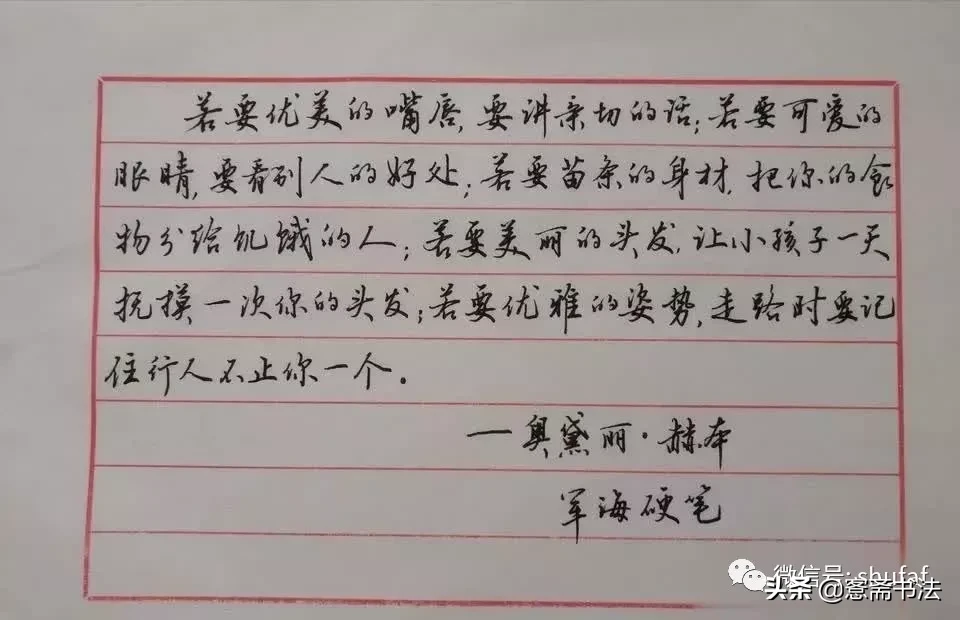 若要优美的嘴唇,要讲亲切的话;若要可爱的
眼睛,要看别人的好处;若要苗条的身材,把你的食
物分给饥饿的人;若要美丽的头发,让小孩子一天
抚摸一次你的头发;若要优雅的姿势,走路时要记
住行人不止你一个。
—奥黛丽·赫本
军海硬笔
微信号: shufaf
头条 @窻斋书法